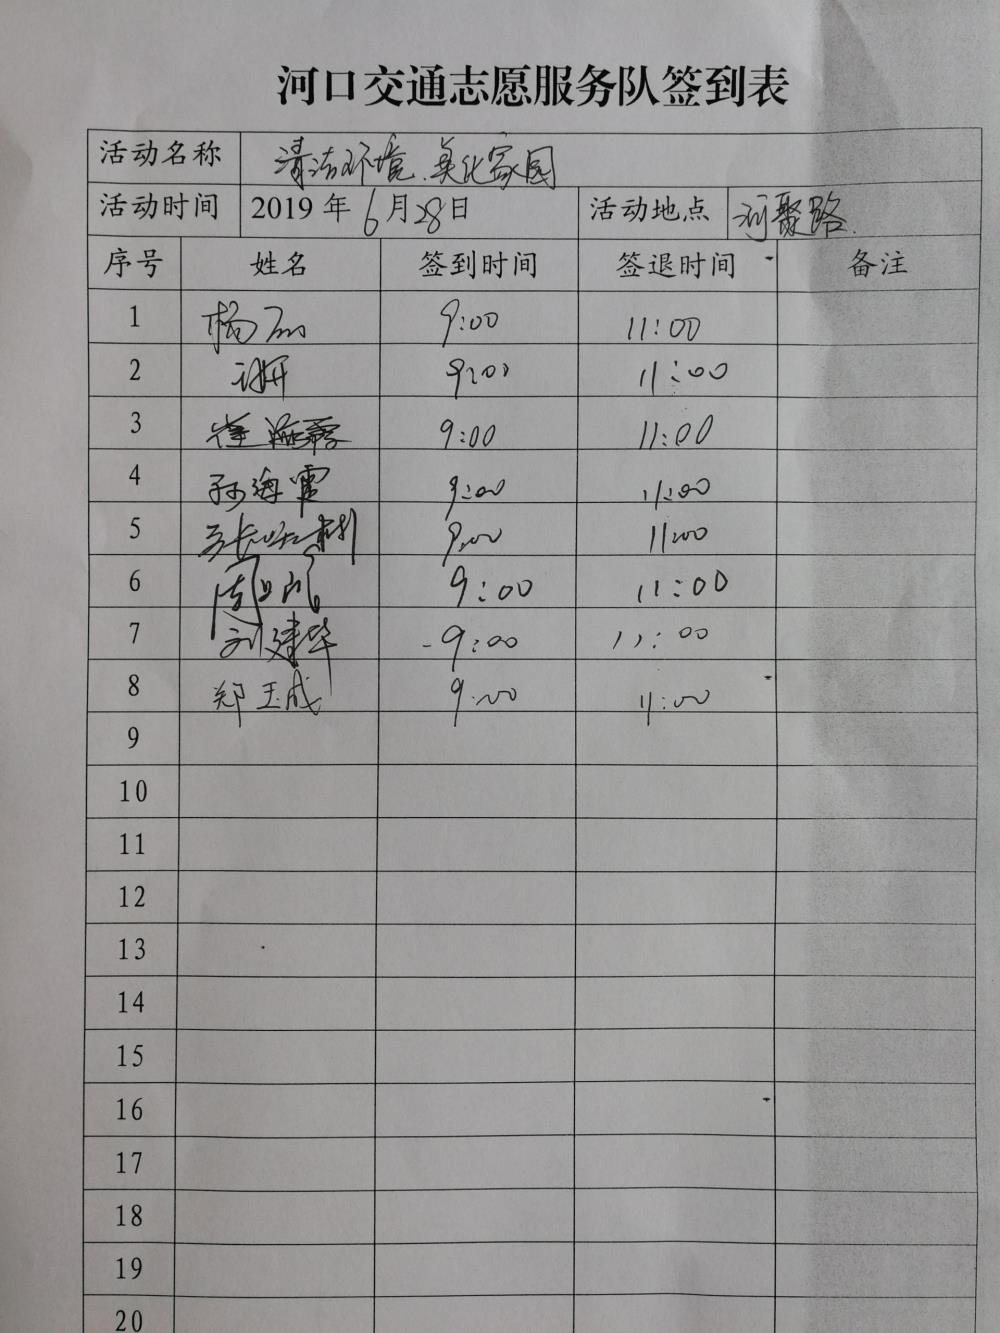 河口交通志愿服务队签到表
活动名称 清洁环境.美化家园
活动时间 2019年6月28日 活动地点 河聚路.
序号 姓名 签到时间 签退时间 备注
1 杨 9:00 11:00
2 9:00 11:00
3 崔海霞 9:00 11:00
4 孙海霞 9:00 11:00
5 9:00 11:00
6 9:00 11:00
7 刘建华 9:00 11:00
8 郑玉成 9:00 11:00
9
10
11
12
13
14
15
16
17
18
19
20